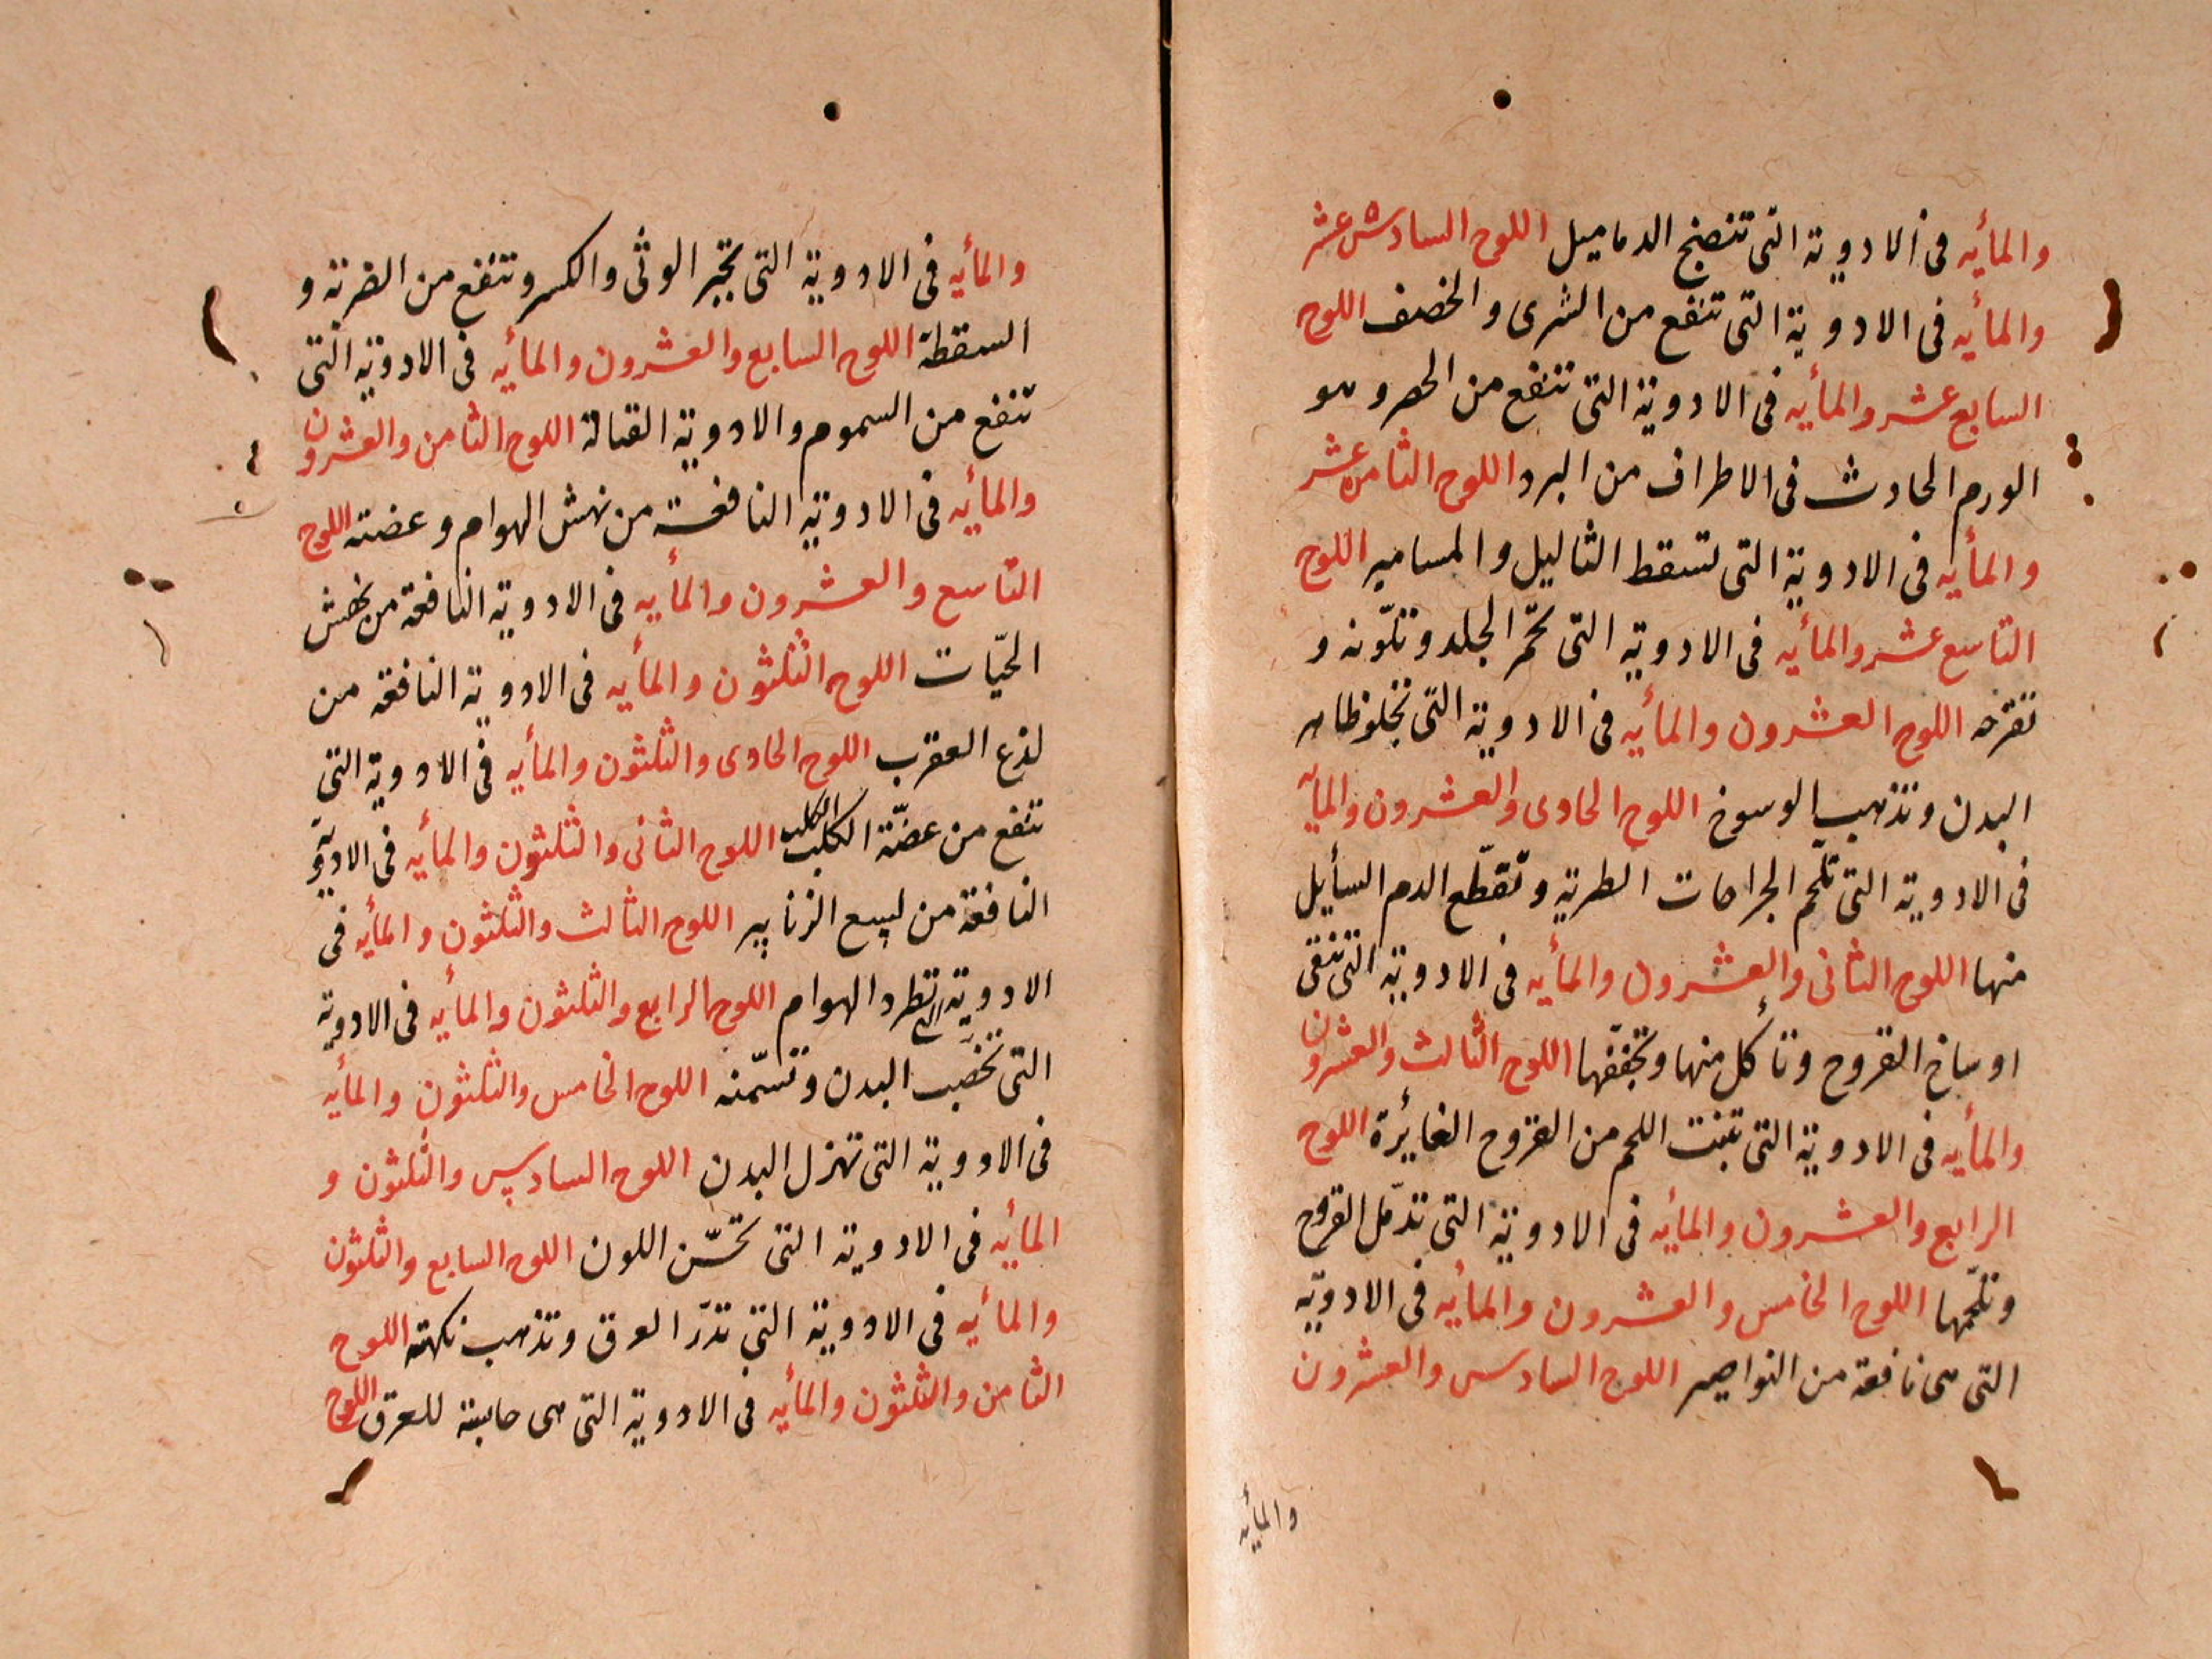 والمأيه فى الادوية التى تنضج الدماميل اللوح السادس عشر
والمأيه فى الادوية التى تنفع من الشرى والحصف اللوح
السابع عشر والمأيه فى الادوية التى تنفع من الحصر وهو
الورم الحادث فى الاطراف من البرد اللوح الثامن عشر
والمأيه فى الادوية التى تسقط الثاليل والمسامير اللوح
التاسع عشر والمأيه فى الادوية التى تحمّر الجلد وتلوّنه و
تقرحه اللوح العشرون والمأيه فى الادوية التى تجلو ظاهر
البدن وتذهب الوسوخ اللوح الحادى والعشرون والمأيه
فى الادوية التى تلحم الجراحات الطرية وتقطّع الدم السأيل
منها اللوح الثانى والعشرون والمأيه فى الادوية التى تنقى
اوساخ القروح وتأكل منها وتجففها اللوح الثالث والعشرون
والمأيه فى الادوية التى تنبت اللحم من القروح الغائرة اللوح
الرابع والعشرون والمأيه فى الادوية التى تدمّل القروح
وتلحّمها اللوح الخامس والعشرون والمأيه فى الادويّة
التى هى نافعة من النواصير اللوح السادس والعشرون
والمأيه
والمأيه فى الادوية التى تجبر الوثى والكسر وتنفع من الضربة و
السقطة اللوح السابع والعشرون والمأيه فى الادوية التى
تنفع من السموم والادوية القتالة اللوح الثامن والعشرون
والمأيه فى الادوية النافعة من نهش الهوام وعضته اللوح
التاسع والعشرون والمأيه فى الادوية النافعة من نهش
الحيّات اللوح الثلثون والمأيه فى الادوية النافعة من
لذع العقرب اللوح الحادى والثلثون والمأيه فى الادوية التى
تنفع من عضّة الكلب الكلب اللوح الثانى والثلثون والمأيه فى الادوية
النافعة من لسع الزنابير اللوح الثالث والثلثون والمأيه فى
الادوية التى تطرد الهوام اللوح الرابع والثلثون والمأيه فى الادوية
التى تخصب البدن وتسمّنه اللوح الخامس والثلثون والمأيه
فى الادوية التى تهزل البدن اللوح السادس والثلثون و
المأيه فى الادوية التى تحسّن اللون اللوح السابع والثلثون
والمأيه فى الادوية التى تدرّ العرق وتذهب نكهته اللوح
الثامن والثلثون والمأيه فى الادوية التى هى حابسة للعرق اللوح